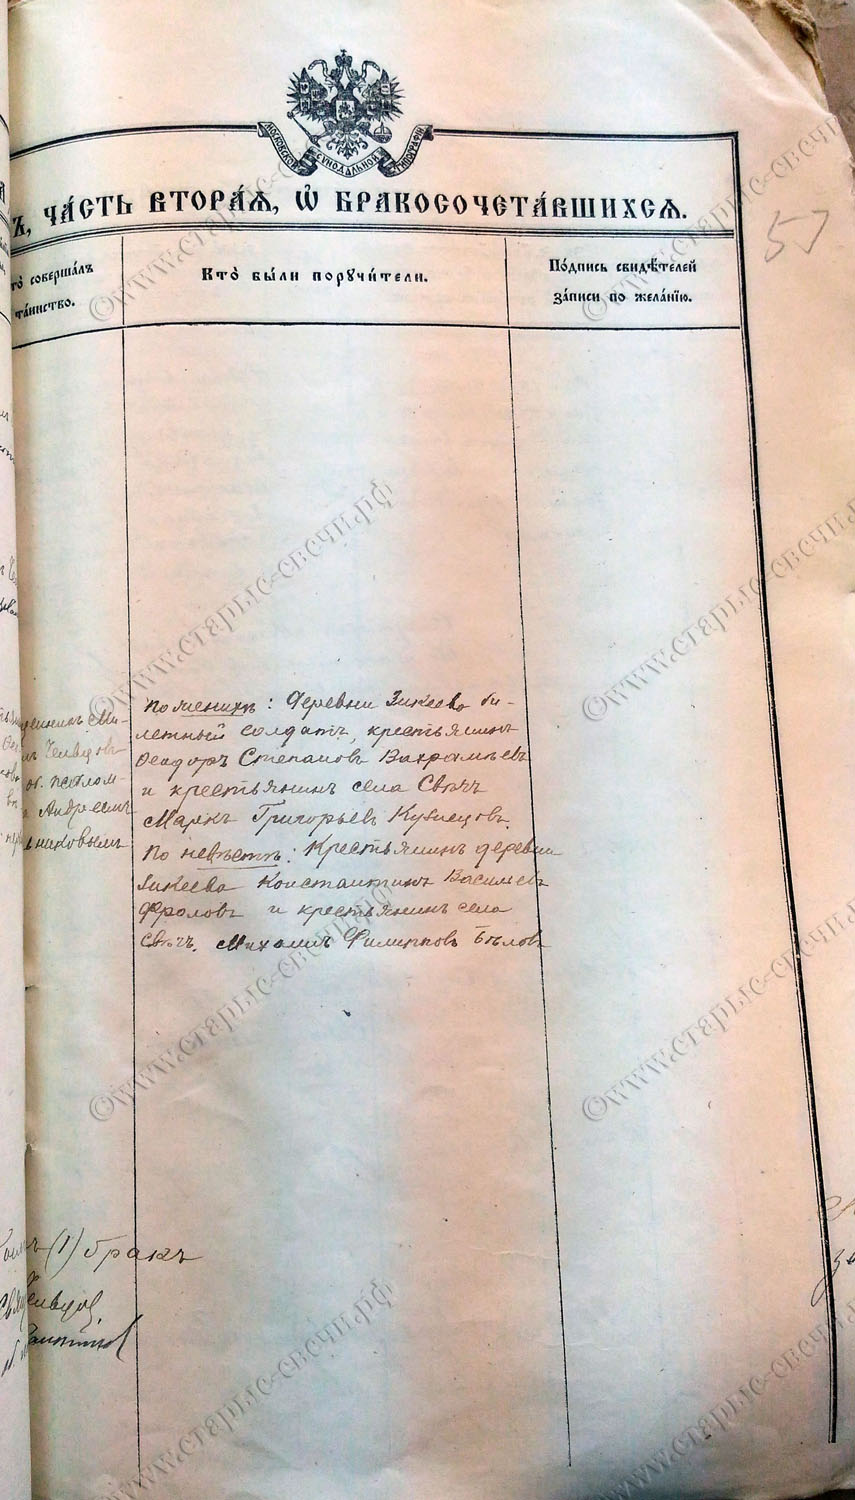 МОСКОВСКОЙ СѴНОДАЛЬНОЙ ТИПОГРАФІИ
Ъ, ЧА́СТЬ ВТОРА́Ѧ, Ѡ҆ БРАКОСОЧЕТА́ВШИХСѦ.
57
то̀ соверша́лъ
та́инство.
Кто̀ бы́ли порꙋчи́тели.
По́дпись свидѣ́телей
за́писи по жела́нїю.
по женихѣ: деревни Зикеева би-
летный солдатъ, крестьянинъ
Ѳеодоръ Степановъ Вахрамѣевъ
и крестьянинъ села Свѣчъ
Маркъ Григорьевъ Кузнецовъ.
По невѣстѣ: Крестьянинъ деревни
Зикеева Константинъ Васильевъ
Фроловъ и крестьянинъ села
Свѣчъ. Михаилъ Филипповъ Бѣловъ
щенникъ Ми-
лъ Чельцовъ
об. псалом-
Андреемъ
никовымъ
(1) бракъ
©www.старые-свечи.рф
©www.старые-свечи.рф
©www.старые-свечи.рф
©www.старые-свечи.рф
©www.старые-свечи.рф
©www.старые-свечи.рф
©www.старые-свечи.рф